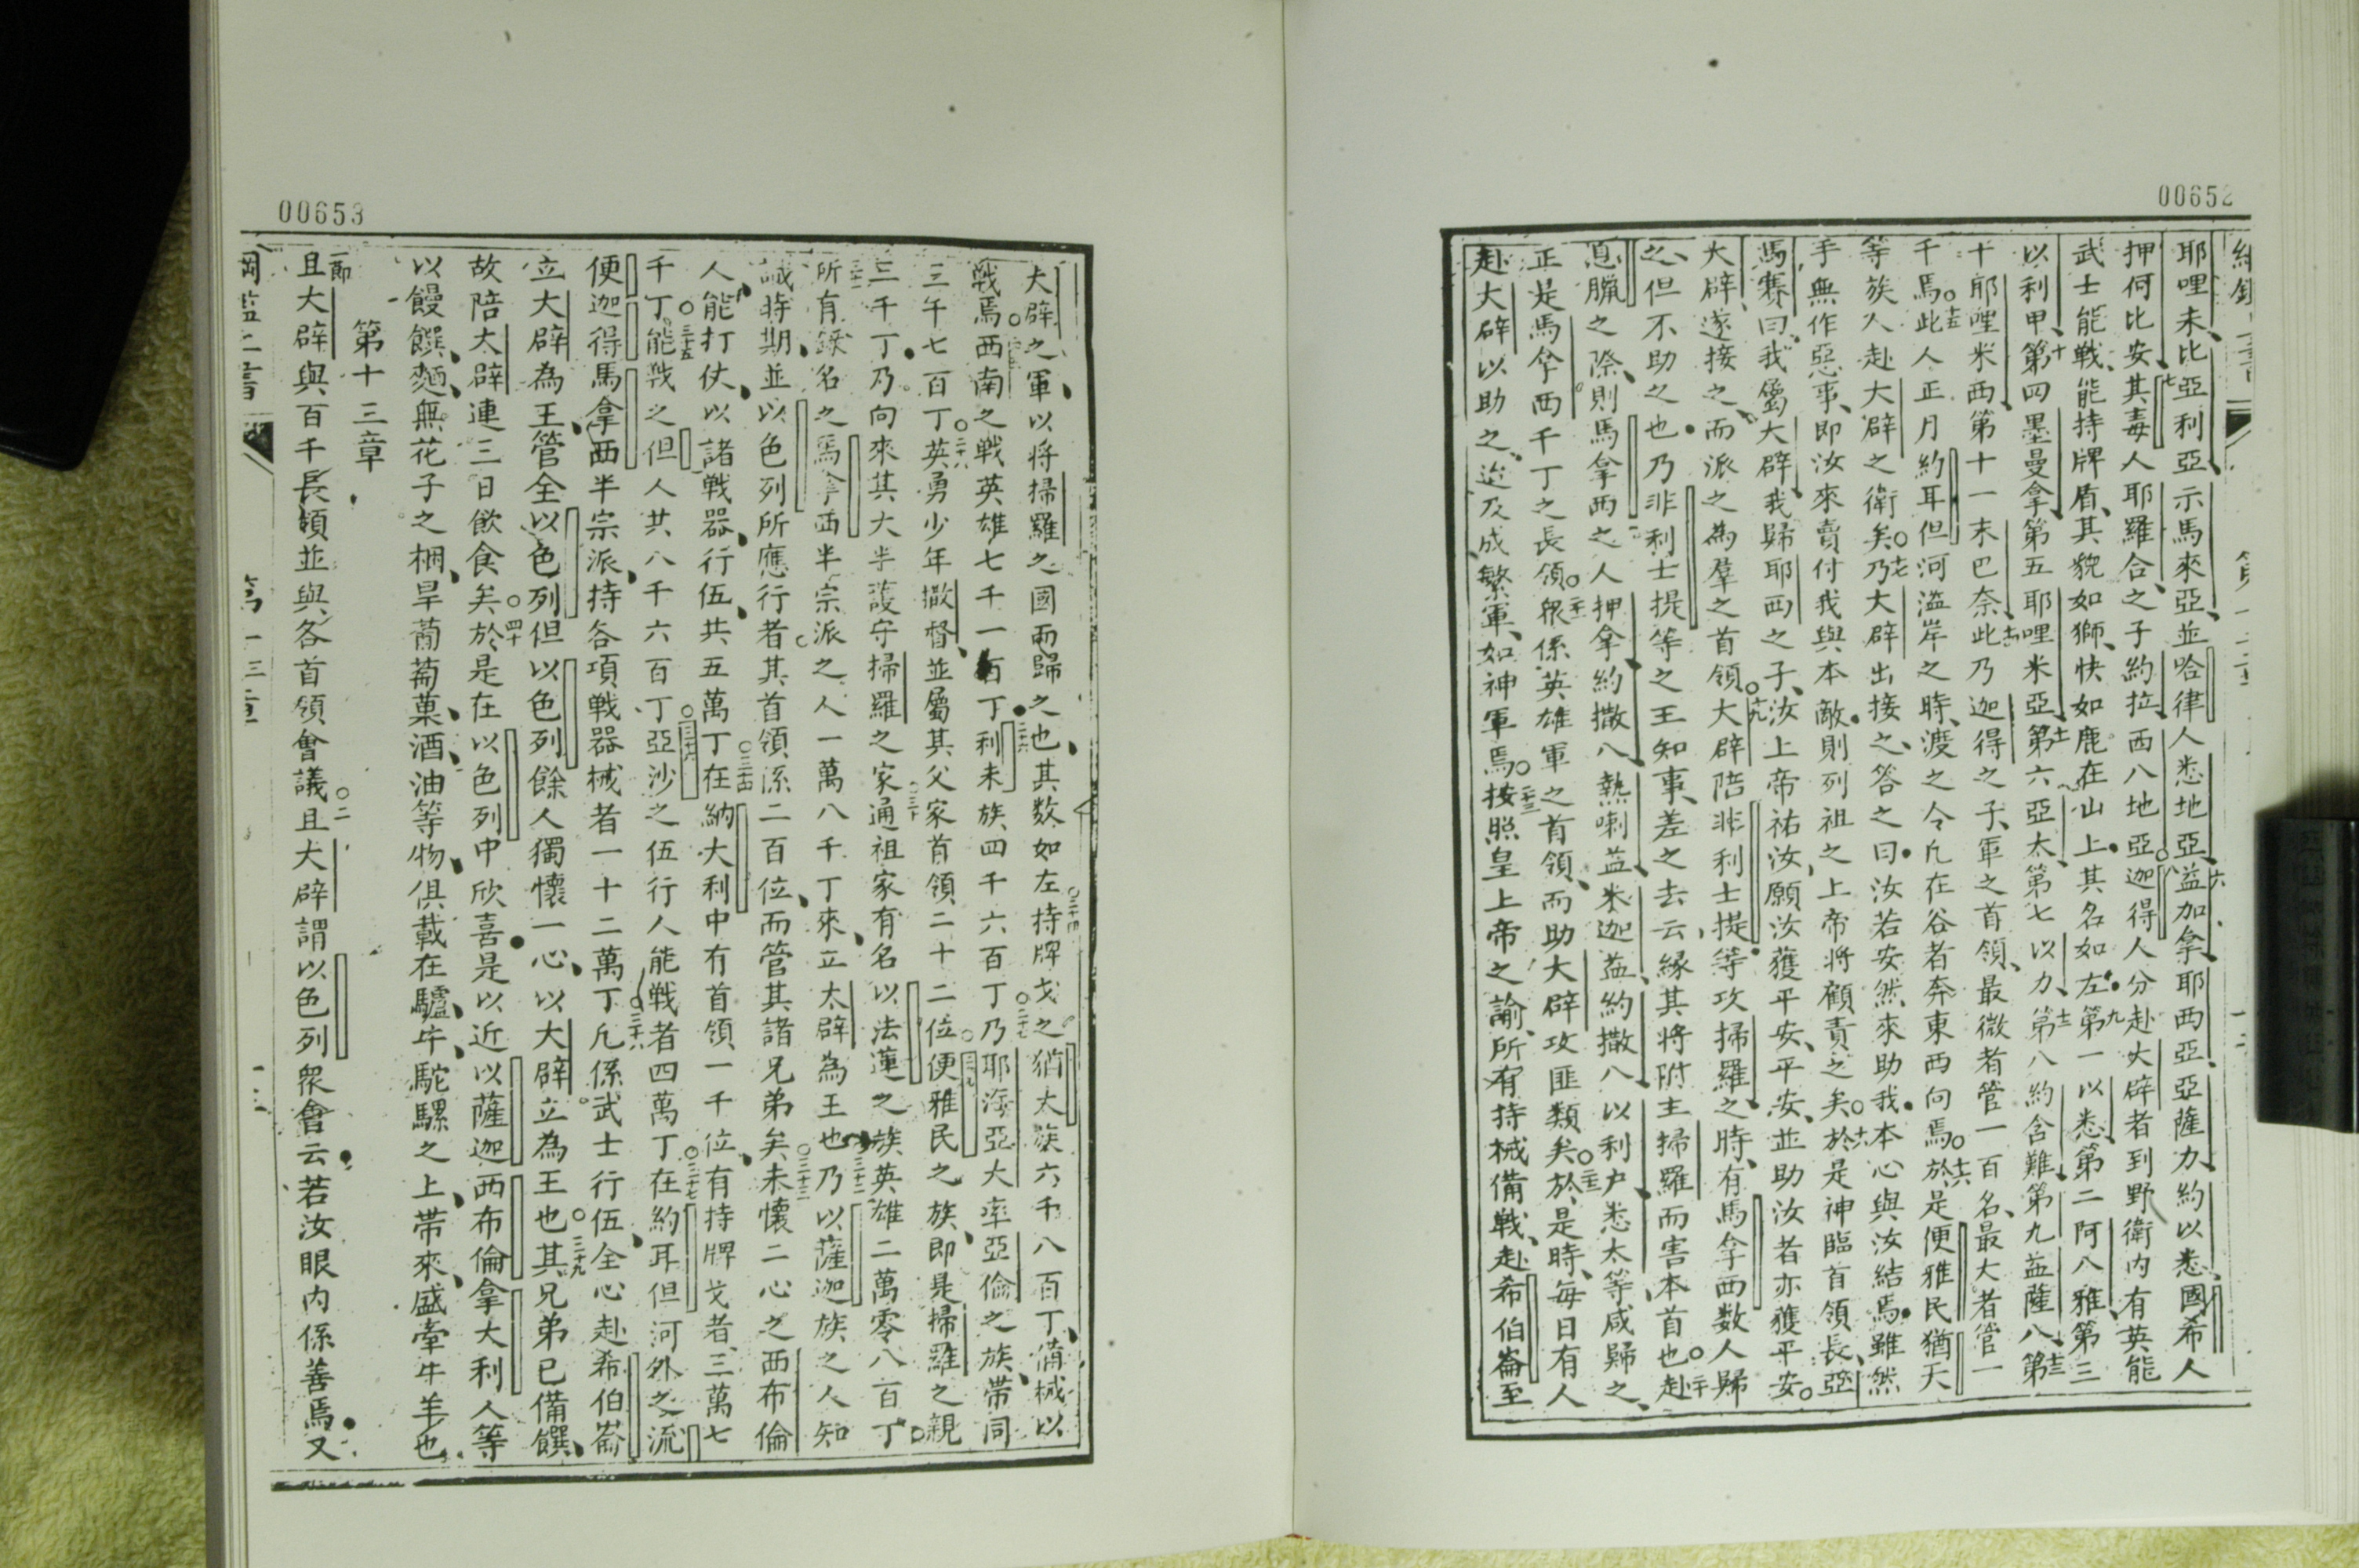 00652
耶哩未比亞利亞示馬來亞並哈律人悉地亞六益加拿耶西亞亞薩力約以悉國希人
押何比安七其毒人耶羅合之子約拉西八地亞○八迦得人分赴大辟者到野衛內有英能
武士能戰能持牌盾其貌如獅快如鹿在山上其名如左九第一以悉第二阿八雅第三
以利甲十第四墨曼拿第五耶哩米亞十一第六亞太第七以力十二第八約含難第九益薩八十三第
十耶哩米西第十一末巴奈十四此乃迦得之子軍之首領最微者管一百名最大者管一
千焉○十五此人正月約耳但河溢岸之時渡之令凡在谷者奔東西向焉○十六於是便雅民猶天
等族人赴大辟之衛矣○十七乃大辟出接之答之曰汝若安然來助我本心與汝結焉雖然
手無作惡事即汝來賣付我與本敵則列祖之上帝將顧責之矣○十八於是神臨首領長亞
馬賽曰我屬大辟我歸耶西之子汝上帝祐汝願汝獲平安平安並助汝者亦獲平安
大辟遂接之而派之為羣之首領○十九大辟陪非利士提等攻掃羅之時有馬拿西数人歸
之但不助之也乃非利士提等之王知事差之去云緣其將附主掃羅而害本首也○二十赴
息臘之際則馬拿西之人押拿約撒八熱喇益米迦益約撒八以利户悉太等咸歸之
正是馬拿西千丁之長領○二一衆係英雄軍之首領而助大辟攻匪類矣○二二於是時每日有人
赴大辟以助之迨及成繁軍如神軍焉○二三按照皇上帝之諭所有持械備戰赴希伯崙至
00653
大辟之軍以將掃羅之國而歸之也其数如左○二十四持牌戈之猶太族六千八百丁備械以
戰焉○二十五西南之戰英雄七千一百丁○二十六利未族四千六百丁○二十七乃耶海亞大率亞倫之族帶同
三千七百丁○二十八英勇少年撒督並屬其父家首領二十二位○二十九便雅民之族即是掃羅之親
三千丁乃向來其大半護守掃羅之家○三十通祖家有名以法蓮之族英雄二萬零八百丁
○三十一所有錄名之馬拿西半宗派之人一萬八千丁來立大辟為王也○三十二乃以薩迦族之人知
誠時期並以色列所應行者其首領係二百位而管其諸兄弟矣○三十三未懷二心之西布倫
人能打仗以諸戰器行伍共五萬丁○三十四在納大利中有首領一千位有持牌戈者三萬七
千丁○三十五能戰之但人共八千六百丁○三十六亞沙之伍行人能戰者四萬丁○三十七在約耳但河外之流
便迦得馬拿西半宗派持各項戰器械者一十二萬丁○三十八凡係武士行伍全心赴希伯崙
立大辟為王管全以色列但以色列餘人獨懷一心以大辟立為王也○三十九其兄弟已備饌
故陪大辟連三日飲食矣○四十於是在以色列中欣喜是以近以薩迦西布倫拿大利人等
以饅饌麵無花子之梱旱葡萄菓酒油等物俱載在驢牛駝騾之上帶來盛牽牛羊也
第十三章
一節且大辟與百千長領並與各首領會議○二且大辟謂以色列衆會云若汝眼內係善焉又
第十三章